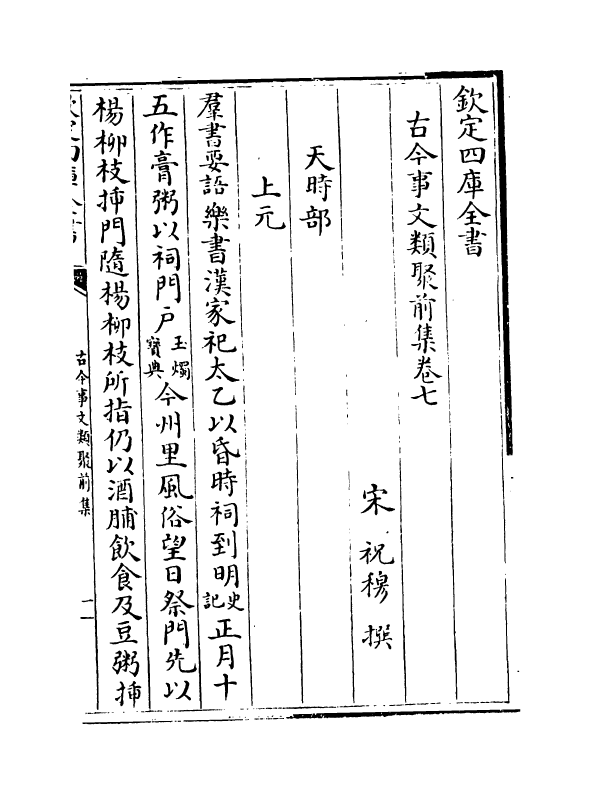 欽定四庫全書
古今事文類聚前集卷七
宋 祝穆 撰
天時部
上元
羣書要語樂書漢家祀太乙以昏時祠到明史記正月十
五作膏粥以祠門戶玉燭寶典今州里風俗望日祭門先以
楊柳枝揷門隨楊柳枝所指仍以酒脯飲食及豆粥揷
欽定四庫全書
古今事文類聚前集
一